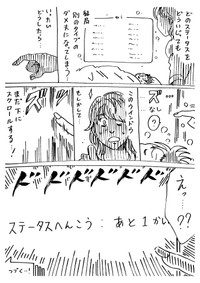 どのステータスを
どういじっても
結局
別のタイプの
ダメ犬になってしまう…
いったい
どうしたら…
ズ
なし?
ズ…
このウインドウ
もしかして…
まだ下に
スクロールする!
ドドドドドドド
えっ…
??
ステータスへんこう:あと1かい
つづく…!